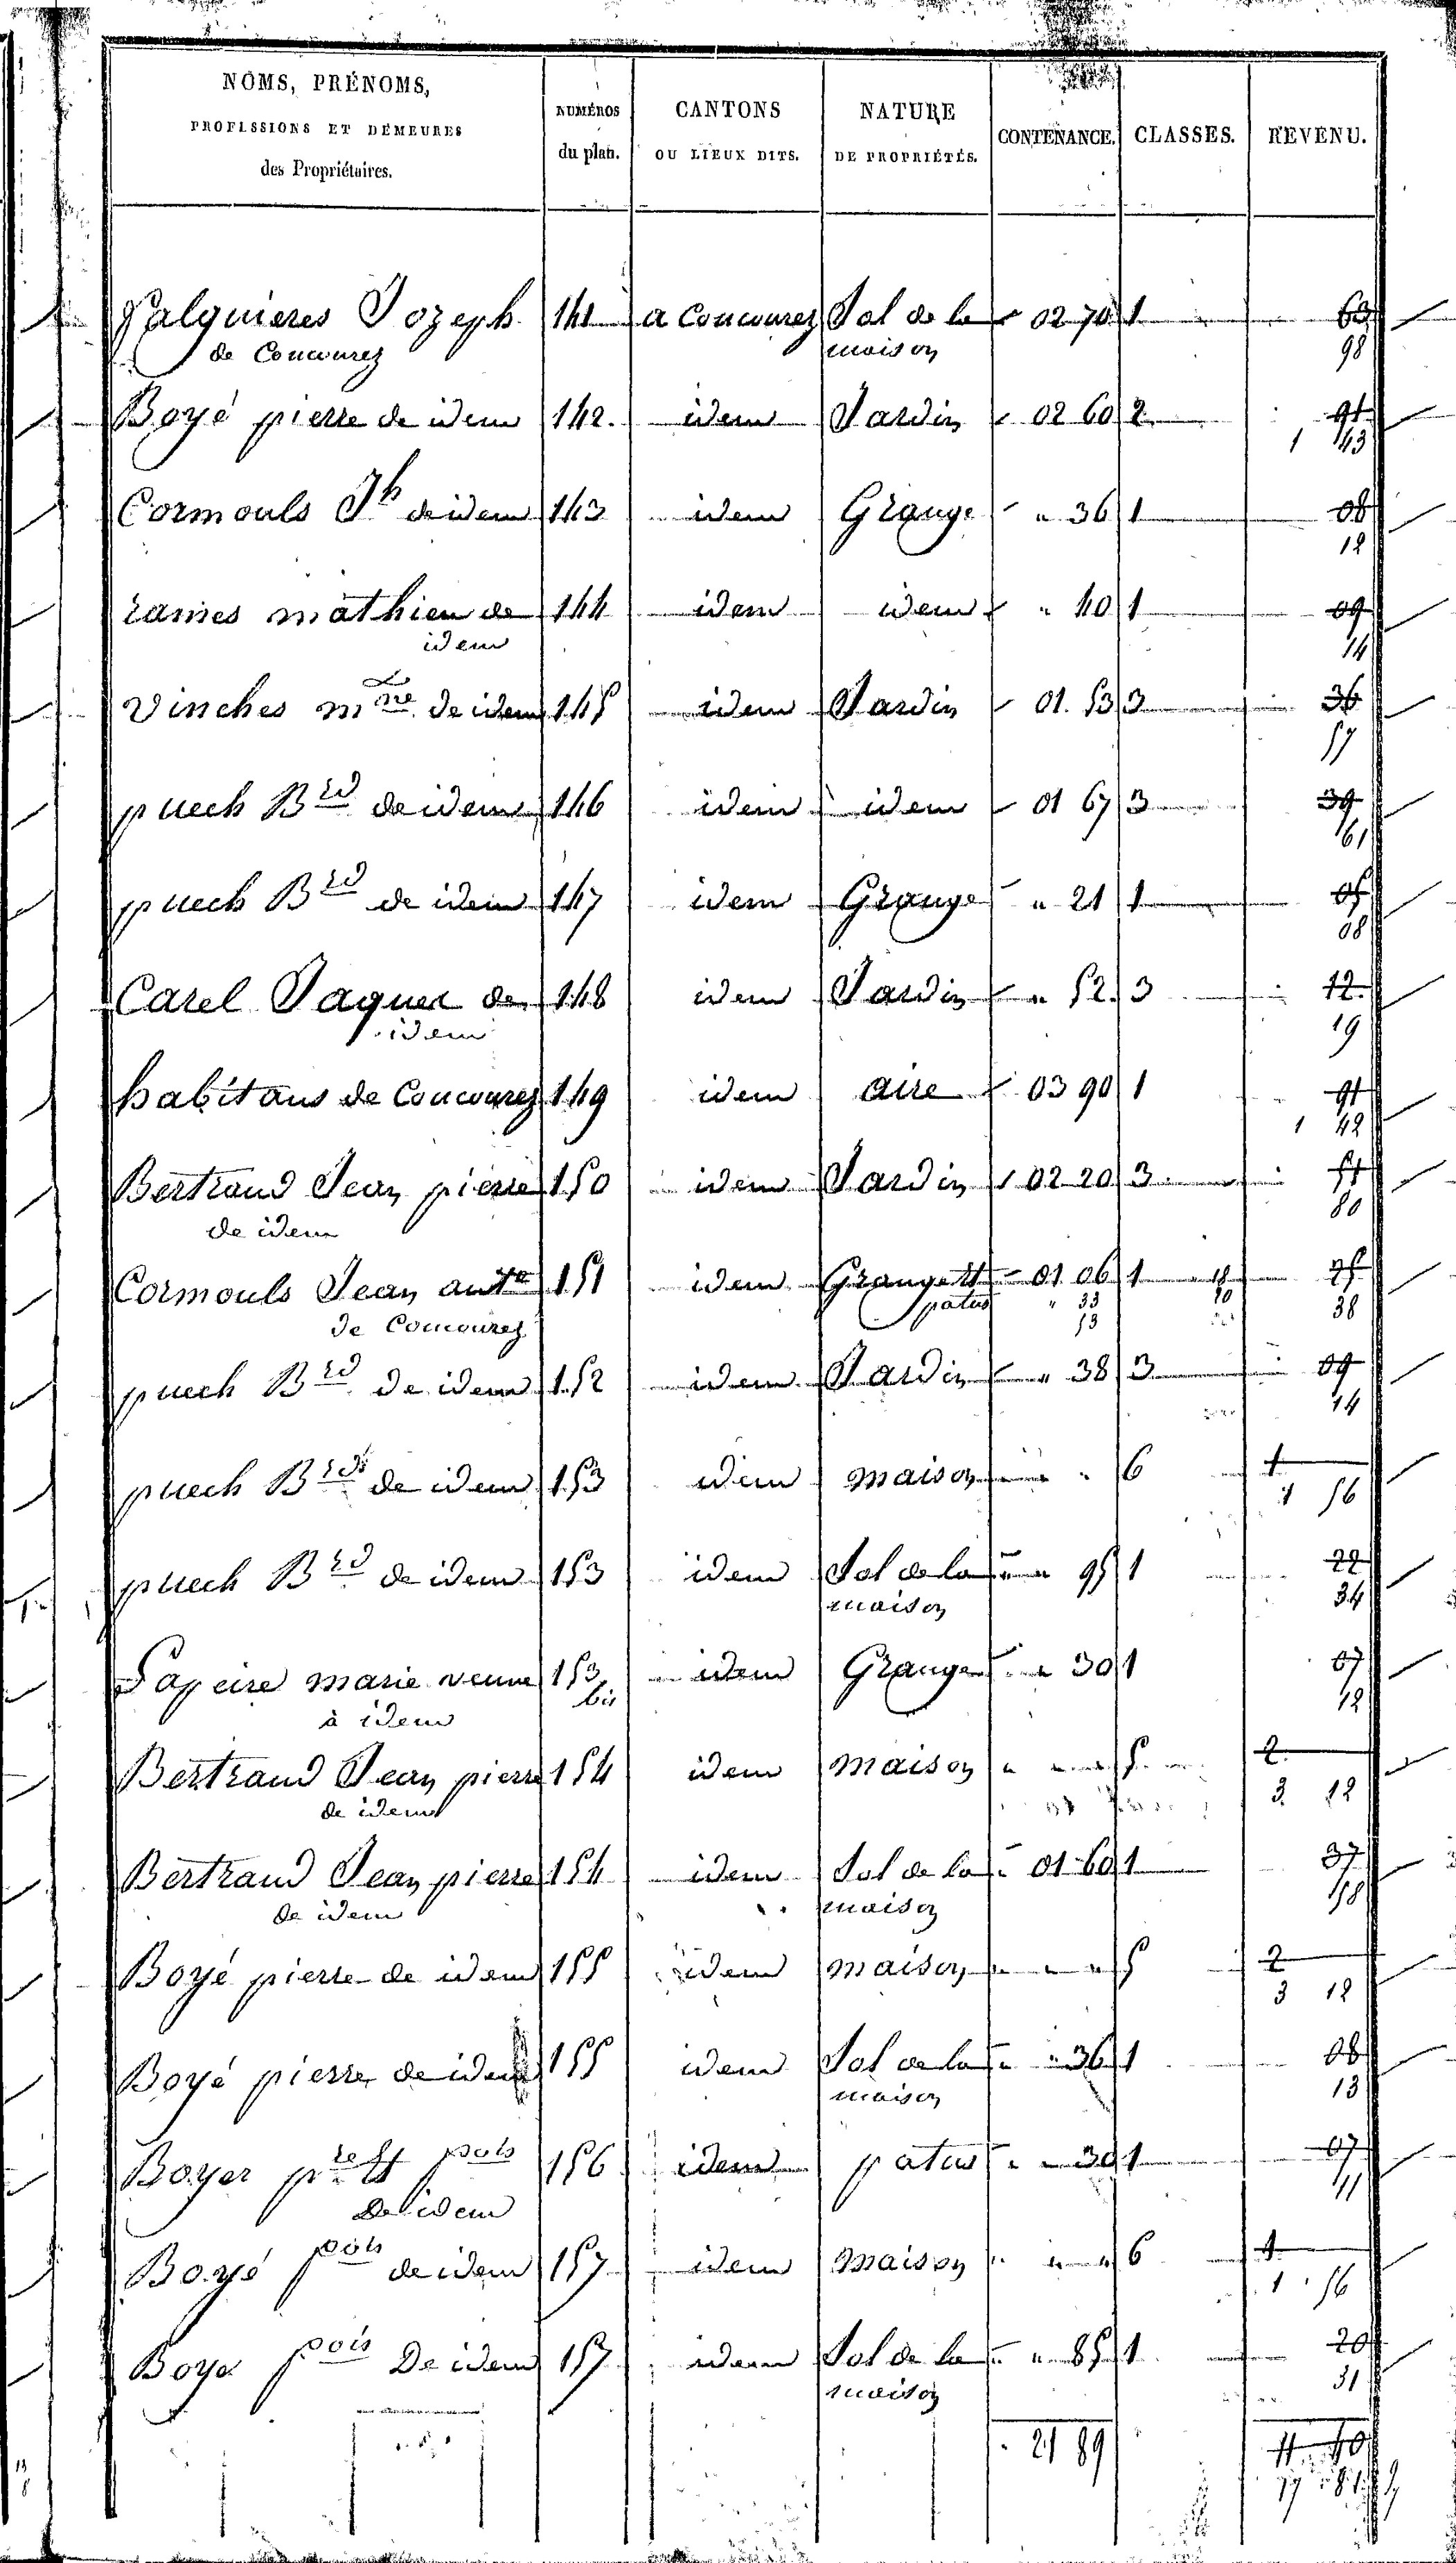 NOMS, PRÉNOMS, PROFESSIONS ET DEMEURES des Propriétaires. NUMÉROS du plan. CANTONS OU LIEUX DITS. NATURE DE PROPRIÉTÉS. CONTENANCE. CLASSES. REVENU.
falguieres Jozeph 141 a Concourez Sol de la 02 70 1 63
de Concourez maison 98
Boyé pierre de idem 142. idem Jardin 02 60 2 91
1 43
Cormouls Jh de idem 143 idem Grange " 36 1 08
12
rames mathieu de 144 idem idem " 40 1 09
idem 14
vinches de idem 145 idem Jardin 01. 53 3 36
57
puech Brd de idem 146 idem idem 01 67 3 39
61
puech Brd de idem 147 idem Grange " 21 1 05
08
Carel Jaques de 148 idem Jardin " 52. 3 12
idem 19
habitans de Concourez 149 idem aire 03 90 1 91
1 42
Bertrand Jean pierre 150 idem Jardin 02 20 3 51
de idem 80
Cormouls Jean ante 151 idem Grange et 01 06 1 18 25
de Concourez patus " 33 20 38
53
puech Brd de idem 152 idem Jardin " 38 3 09
14
puech Brd de idem 153 idem maison " " 6 1
1 56
puech Brd de idem 153 idem Sol de la " " 95 1 22
maison 34
marie veuve 153 idem Grange " 30 1 07
à idem bis 12
Bertrand Jean pierre 154 idem maison " " " 5 2
de idem 3 12
Bertrand Jean pierre 154 idem Sol de la 01 60 1 37
de idem maison 58
Boyé pierre de idem 155 idem maison " " " 5 2
3 12
Boyé pierre de idem 155 idem Sol de la " " 36 1 08
maison 13
Boyer pre et fcois 156 idem patus " " 30 1 07
De idem 11
Boyé fcois de idem 157 idem maison " " " 6 1
1 56
Boye fcois De idem 157 idem Sol de la " " 85 1 20
maison 31
21 89 11 40
17 81